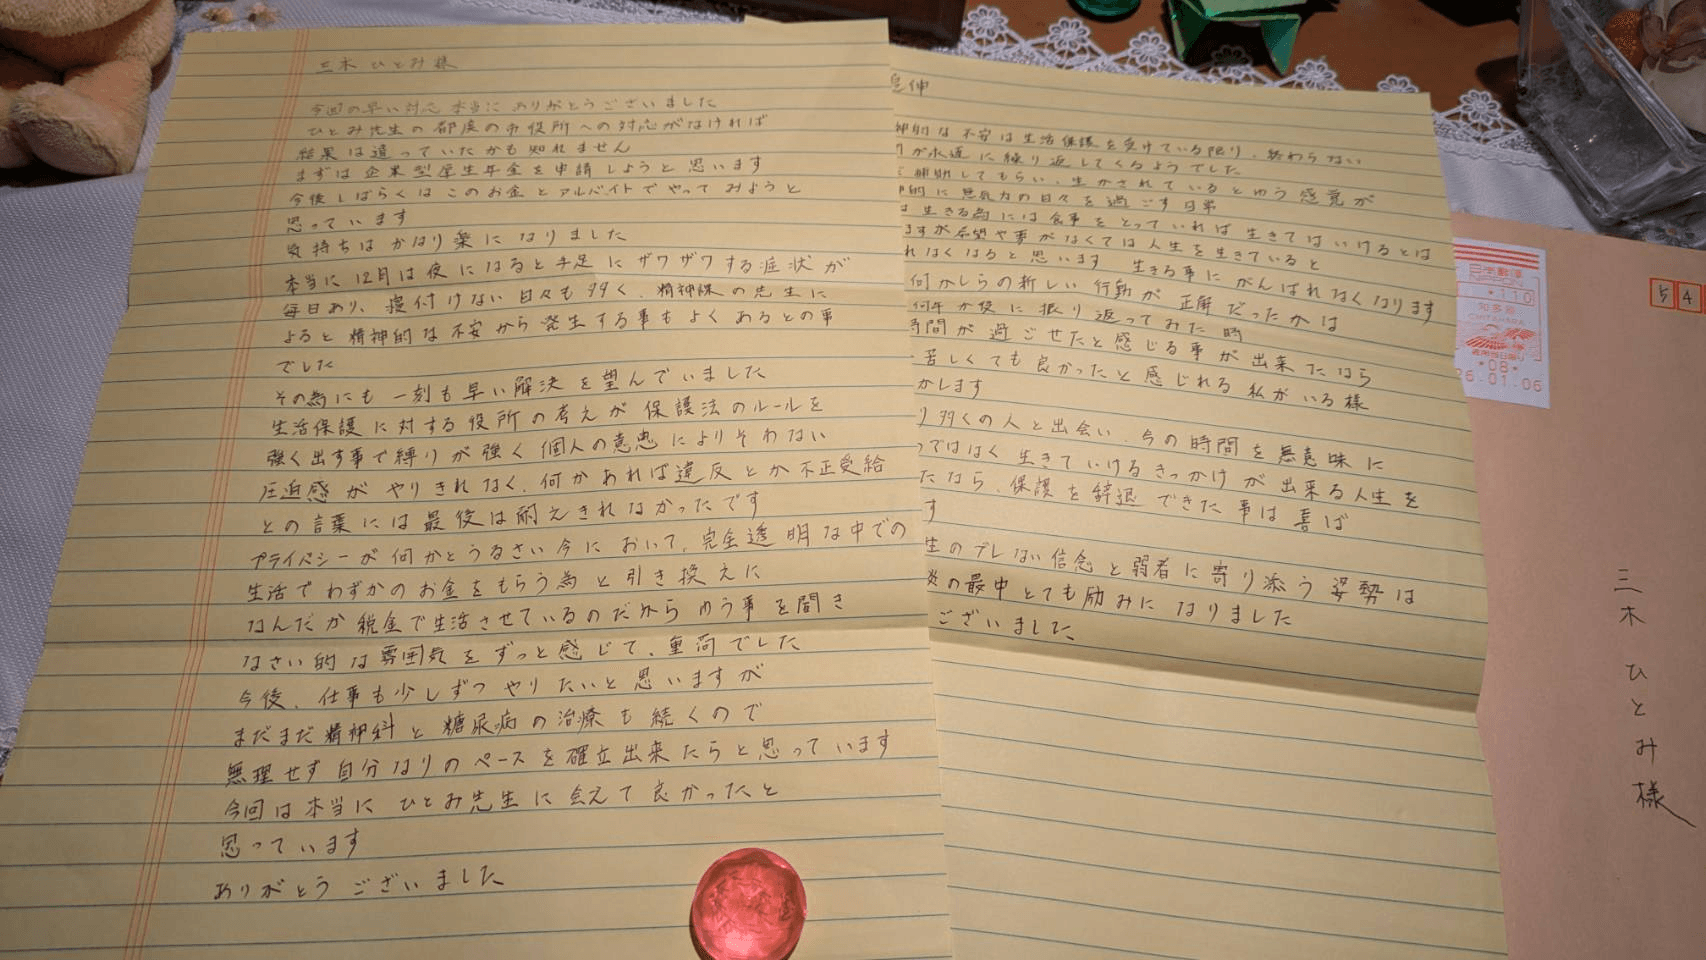 三木 ひとみ 様
今回の早い対応 本当に ありがとうございました
ひとみ先生の 都度の市役所への対応がなければ
結果は違っていたかも知れません
まずは企業型厚生年金を申請しようと思います
今後しばらくは このお金とアルバイトで やって みようと
思っています
気持ちは かなり楽に なりました
本当に 12月は夜になると手足に ザワザワする症状が
毎日あり、寝付けない日々も多く、精神科の先生に
よると精神的な不安から発生する事もよくあるとの事
でした
その為にも 一刻も早い解決を望んでいました
生活保護に対する役所の考えが 保護法のルールを
強く出す事で縛りが強く 個人の意思によりそわない
圧迫感が やりきれなく、何かあれば違反とか不正受給
との言葉には最後は耐えきれなかったです
プライバシーが何かとうるさい今において、完全透明な中での
生活でわずかのお金をもらう為と引き換えに
なんだか税金で生活させているのだからゆう事を聞き
なさい的な雰囲気をずっと感じて、重荷でした
今後、仕事も少しずつやりたいと思いますが
まだまだ精神科と糖尿病の治療も続くので
無理せず自分なりのペースを確立出来たらと思っています
今回は本当に ひとみ先生に会えて良かったと
思っています
ありがとうございました
追伸
神的な不安は生活保護を受けている限り、終わらない
が永遠に繰り返してくるようでした
補助してもらい、生かされているとゆう感覚が
的に無気力の日々を過ごす日常
生きる為には食事をとっていれば生きてはいけるとは
ますが希望や夢がなくては人生を生きていると
れなくなると思います 生きる事にがんばれなくなります
何かしらの新しい行動が正解だったかは
何年か後に振り返ってみた時
時間が過ごせたと感じる事が出来たなら
苦しくても良かったと感じれる私がいる様
がします
り多くの人と出会い、今の時間を無意味に
ではなく生きていけるきっかけが出来る人生を
たなら、保護を辞退できた事は喜ば
す
生のブレない信念と弱者に寄り添う姿勢は
の最中とても励みになりました
ございました
日本郵便
NIPPON
*110
知多原
CHITAHARA
*08*
26.01.06
54
三木 ひとみ様